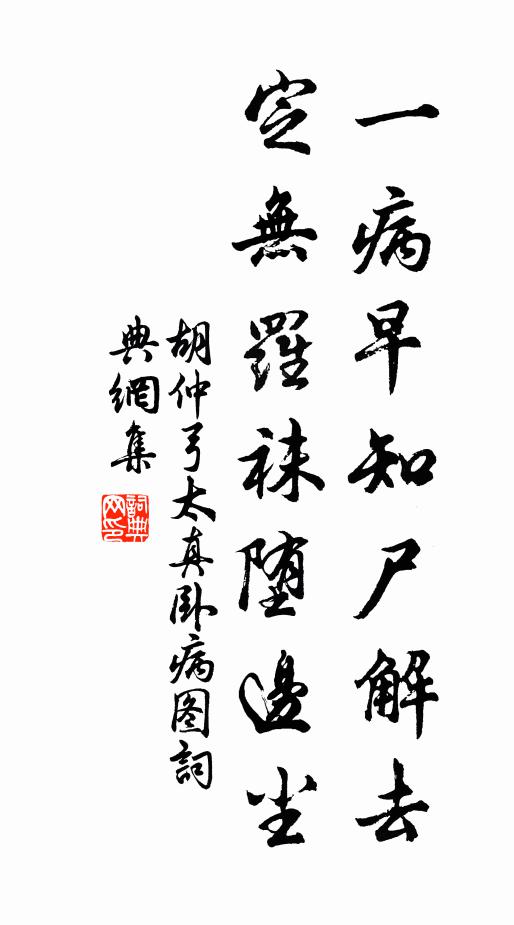 一病早知尸解去
定無羅袜堕邊尘
胡仲弓太真卧病图詞
典網集
詞典网印